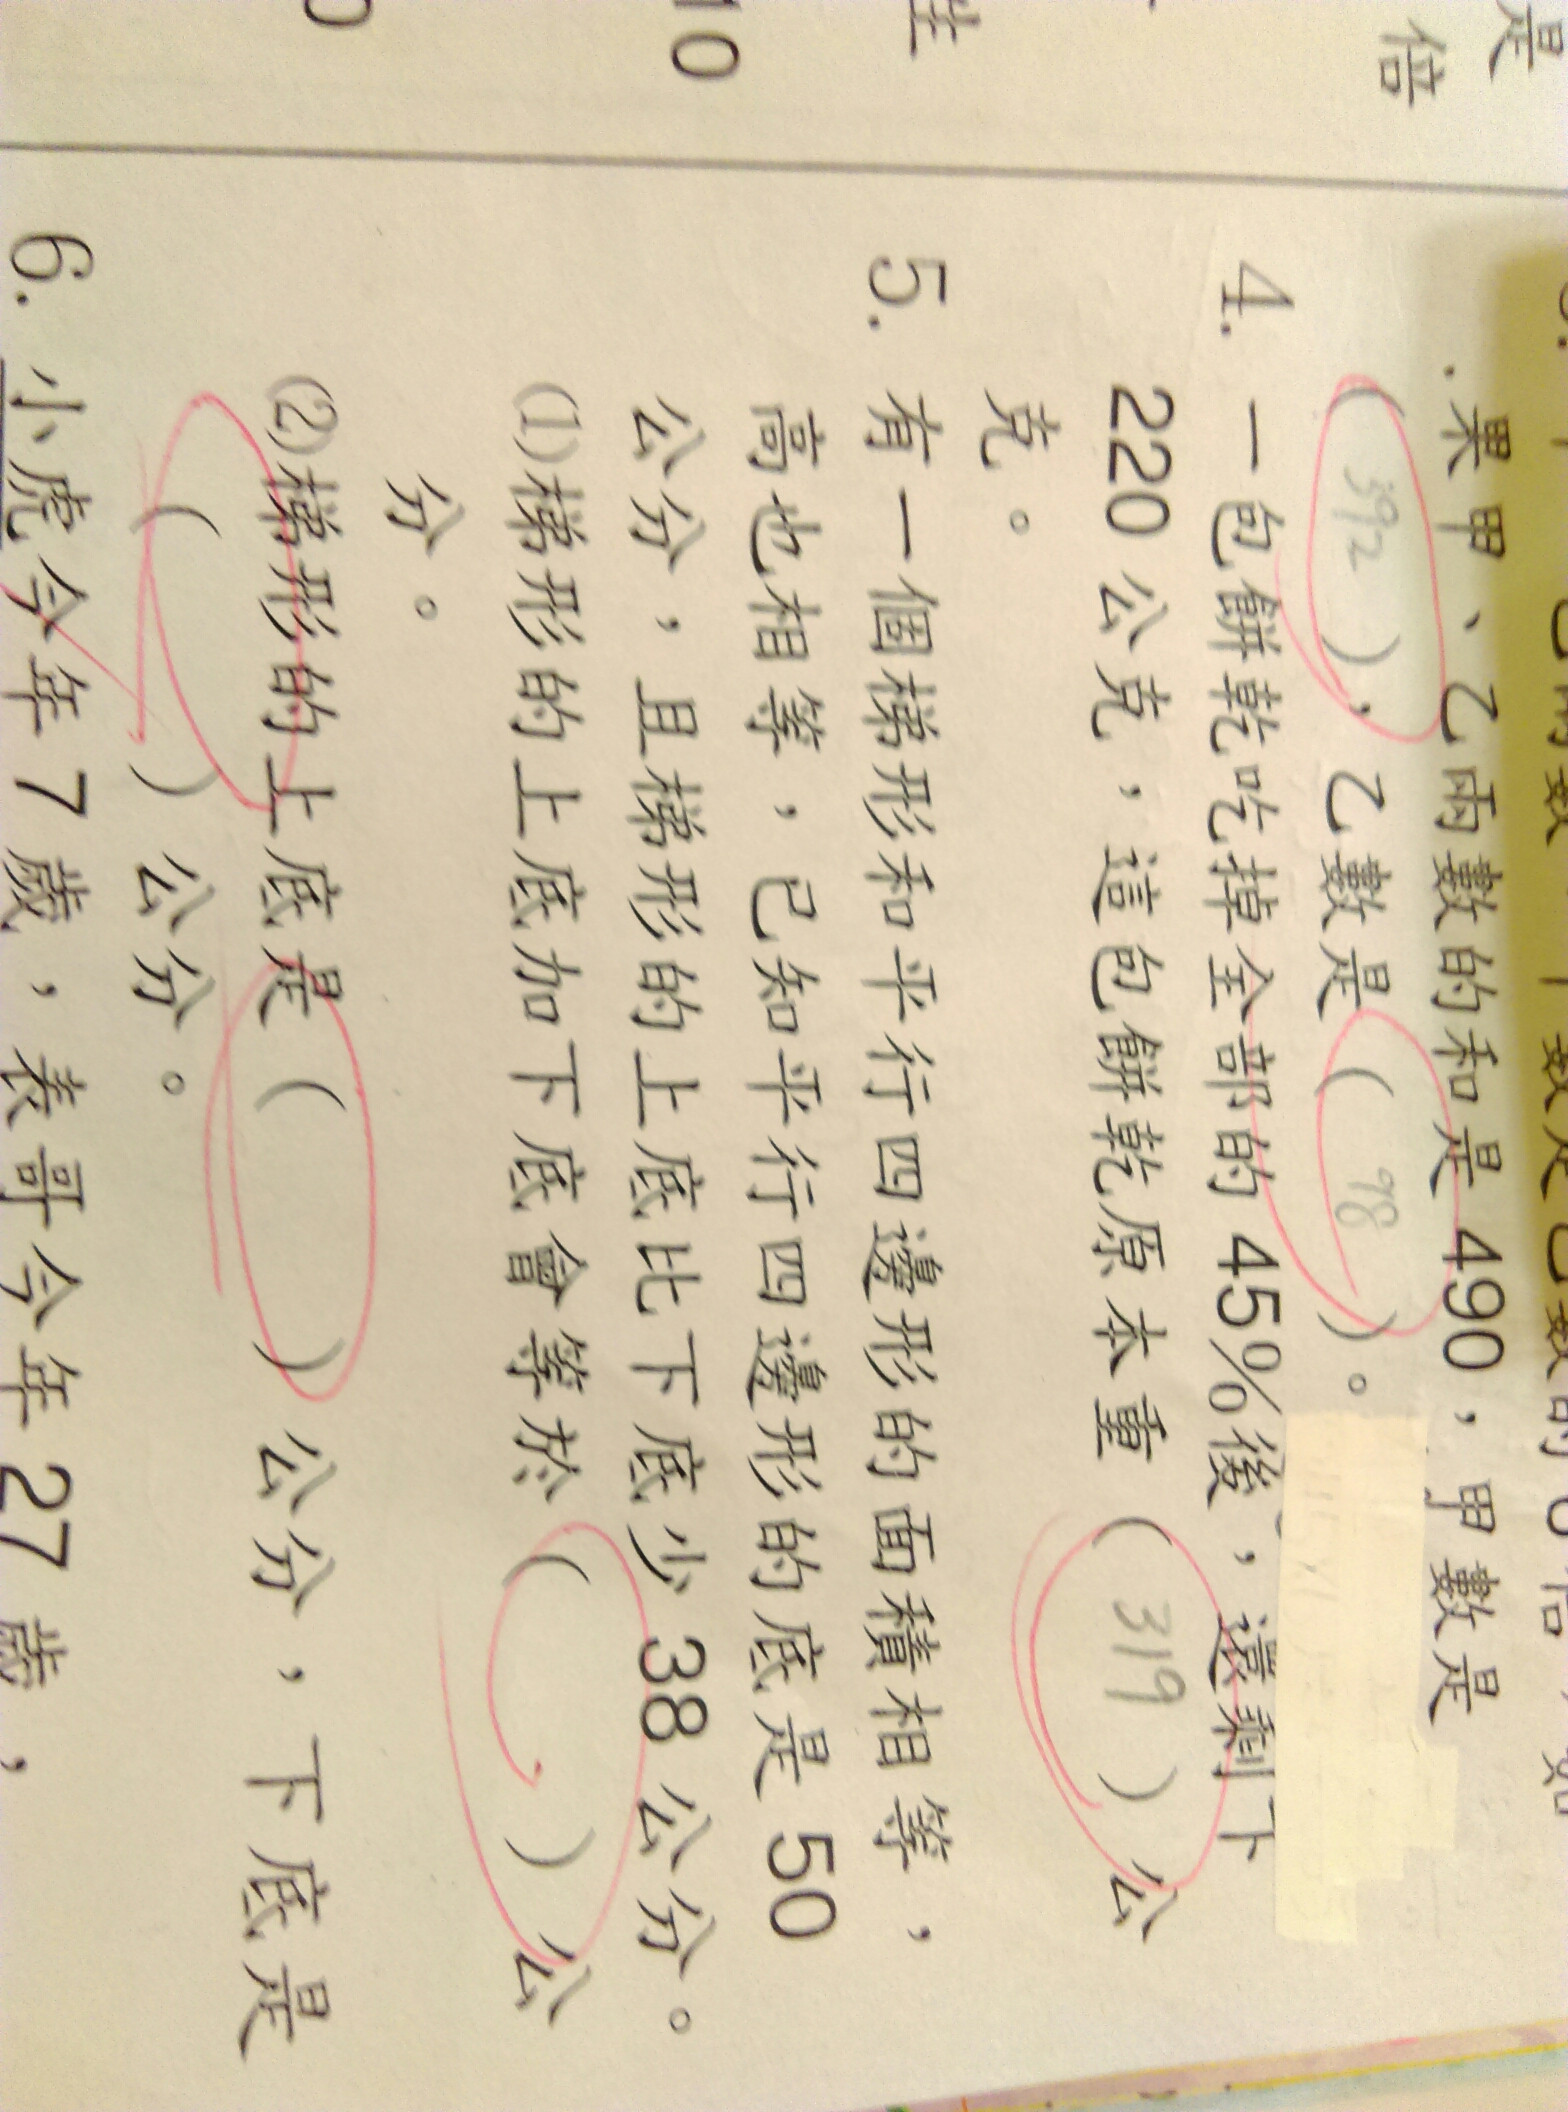 是
倍
生
10
0
果甲、乙兩數的和是 490，甲數是
( 392 )，乙數是 ( 98 )。
4. 一包餅乾吃掉全部的 45%後，還剩下
220 公克，這包餅乾原本重 ( 319 ) 公
克。
5. 有一個梯形和平行四邊形的面積相等，
高也相等，已知平行四邊形的底是 50
公分，且梯形的上底比下底少 38 公分。
(1)梯形的上底加下底會等於 (　　) 公
分。
(2)梯形的上底是 (　　) 公分，下底是
(　　) 公分。
6. 小虎今年 7 歲，表哥今年 27 歲，